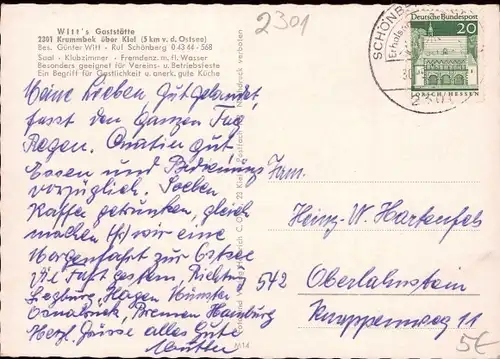 Witt's Gaststätte
2301 Krummbek über Kiel (3 km v.d. Ostsee)
Bes. Günter Witt - Ruf Schönberg 0 43 44 - 568
Saal - Klubzimmer - Fremdenz. m. fl. Wasser
Besonders geeignet für Vereins- u. Betriebsfeste
Ein Begriff für Gastlichkeit u. anerk. gute Küche
2301
SCHÖNBE
Deutsche Bundespost
20
LORSCH/HESSEN
Meine Lieben, Gut gelandet,
fast den ganzen Tag
Regen. Quartier gut,
Essen und Bedienung
vorzüglich. Soeben
Kaffee getrunken, gleich
machen wir eine
Morgenfahrt zur Ostsee
Die Fahrt gestern, Richtung
Siegburg, Hagen Münster
Osnabrück, Bremen Hamburg
Herzl. Grüsse alles Gute
Mutter
M14
Fam.
Heinz-W. Hartenfels
542 Oberlahnstein
Knappenweg 11
5€